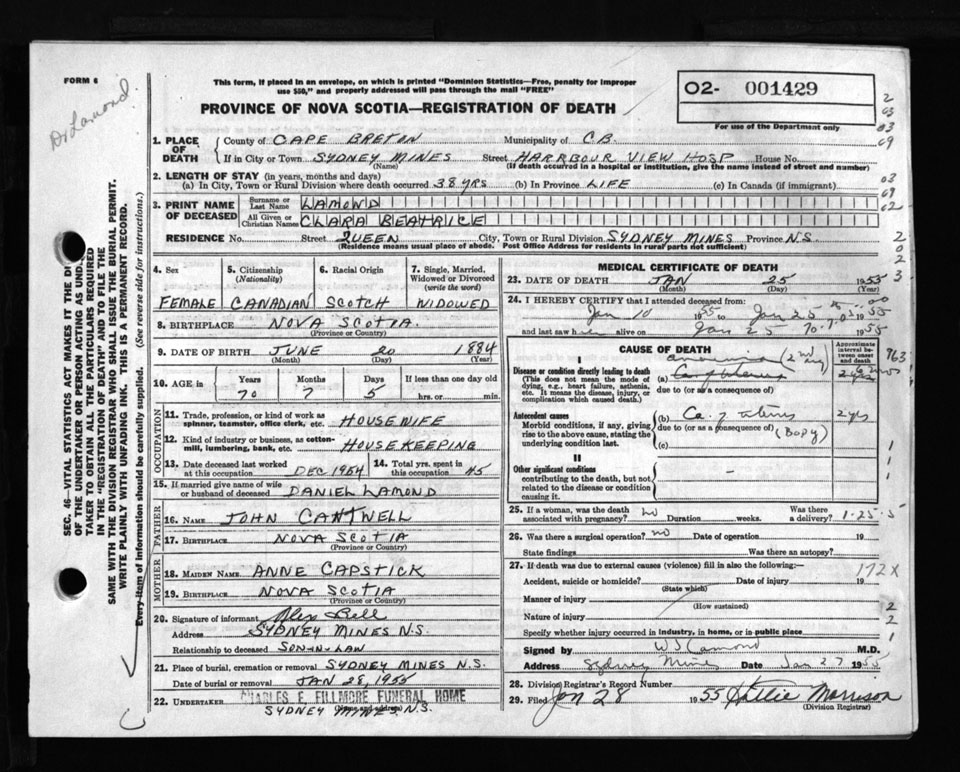 FORM 6
Dr Lamond.
This form, if placed in an envelope, on which is printed "Dominion Statistics—Free, penalty for improper
use $50," and properly addressed will pass through the mail "FREE"
PROVINCE OF NOVA SCOTIA—REGISTRATION OF DEATH
O2- 001429
For use of the Department only
1. PLACE OF DEATH County of CAPE BRETON Municipality of C.B.
If in City or Town SYDNEY MINES Street HARRBOUR VIEW HOSP House No.
(Name) (If death occurred in a hospital or institution, give the name instead of street and number)
2. LENGTH OF STAY (in years, months and days)
(a) In City, Town or Rural Division where death occurred 38 YRS (b) In Province LIFE (c) In Canada (if immigrant)
3. PRINT NAME OF DECEASED Surname or Last Name LAMOND
All Given or Christian Names CLARA BEATRICE
RESIDENCE No. Street QUEEN City, Town or Rural Division SYDNEY MINES Province N.S.
(Residence means usual place of abode. Post Office Address for residents in rural parts not sufficient)
4. Sex FEMALE
5. Citizenship (Nationality) CANADIAN
6. Racial Origin SCOTCH
7. Single, Married, Widowed or Divorced (write the word) WIDOWED
8. BIRTHPLACE NOVA SCOTIA.
(Province or Country)
9. DATE OF BIRTH JUNE 20 1884
(Month) (Day) (Year)
10. AGE in Years Months Days If less than one day old
70 7 5 hrs. or min.
OCCUPATION
11. Trade, profession, or kind of work as spinner, teamster, office clerk, etc. HOUSEWIFE
12. Kind of industry or business, as cotton-mill, lumbering, bank, etc. HOUSEKEEPING
13. Date deceased last worked at this occupation DEC 1954 14. Total yrs. spent in this occupation 45
15. If married give name of wife or husband of deceased DANIEL LAMOND
FATHER
16. NAME JOHN CANTWELL
17. BIRTHPLACE NOVA SCOTIA
(Province or Country)
MOTHER
18. MAIDEN NAME ANNE CAPSTICK
19. BIRTHPLACE NOVA SCOTIA
(Province or Country)
20. Signature of informant Alex Bell
Address SYDNEY MINES N.S.
Relationship to deceased SON-IN-LAW
21. Place of burial, cremation or removal SYDNEY MINES N.S.
Date of burial or removal JAN 28, 1955
22. UNDERTAKER CHARLES E. FILLMORE FUNERAL HOME
SYDNEY MINES N.S.
MEDICAL CERTIFICATE OF DEATH
23. DATE OF DEATH JAN 25 1955
(Month) (Day) (Year)
24. I HEREBY CERTIFY that I attended deceased from:
Jan 10 1955 to Jan 25 1955
and last saw her alive on Jan 25 1955
CAUSE OF DEATH
Approximate interval between onset and death
I
Disease or condition directly leading to death
(This does not mean the mode of dying, e.g., heart failure, asthenia, etc. It means the disease, injury, or complication which caused death.)
(a)
due to (or as a consequence of)
Antecedent causes
Morbid conditions, if any, giving rise to the above cause, stating the underlying condition last.
(b) Ca. of uterus 2 yrs
due to (or as a consequence of)
(Body)
(c)
II
Other significant conditions
contributing to the death, but not related to the disease or condition causing it.
25. If a woman, was the death associated with pregnancy? no Duration weeks. Was there a delivery?
26. Was there a surgical operation? no Date of operation 19
State findings Was there an autopsy?
27. If death was due to external causes (violence) fill in also the following:—
Accident, suicide or homicide? Date of injury 19
(State which)
Manner of injury
(How sustained)
Nature of injury
Specify whether injury occurred in industry, in home, or in public place
Signed by W S Lamond M.D.
Address Sydney Mines Date Jan 27 1955
28. Division Registrar's Record Number
29. Filed Jan 28 1955 Hattie Morrison
(Division Registrar)
172X
1-25-5
963
SEC. 46—VITAL STATISTICS ACT MAKES IT THE
OF THE UNDERTAKER OR PERSON ACTING AS
TAKER TO OBTAIN ALL THE PARTICULARS REQUIRED
IN THE "REGISTRATION OF DEATH" AND TO FILE THE
SAME WITH THE DIVISION REGISTRAR WHO SHALL ISSUE THE BURIAL PERMIT.
WRITE PLAINLY WITH UNFADING INK. THIS IS A PERMANENT RECORD.
Every item of information should be carefully supplied. (See reverse side for instructions.)